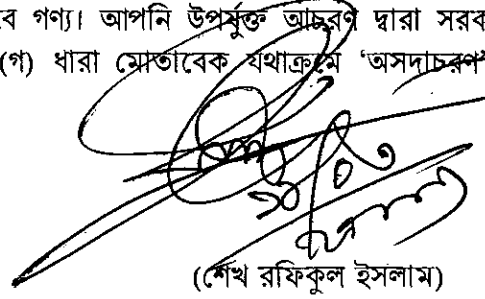 বে গণ্য। আপনি উপর্যুক্ত আচরণ দ্বারা সরক
(গ) ধারা মোতাবেক যথাক্রমে ‘অসদাচরণ’
(শেখ রফিকুল ইসলাম)